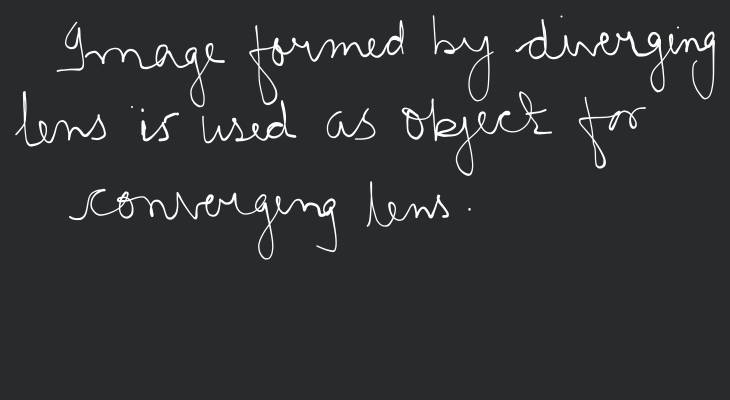 Image formed by diverging
lens is used as object for
converging lens.